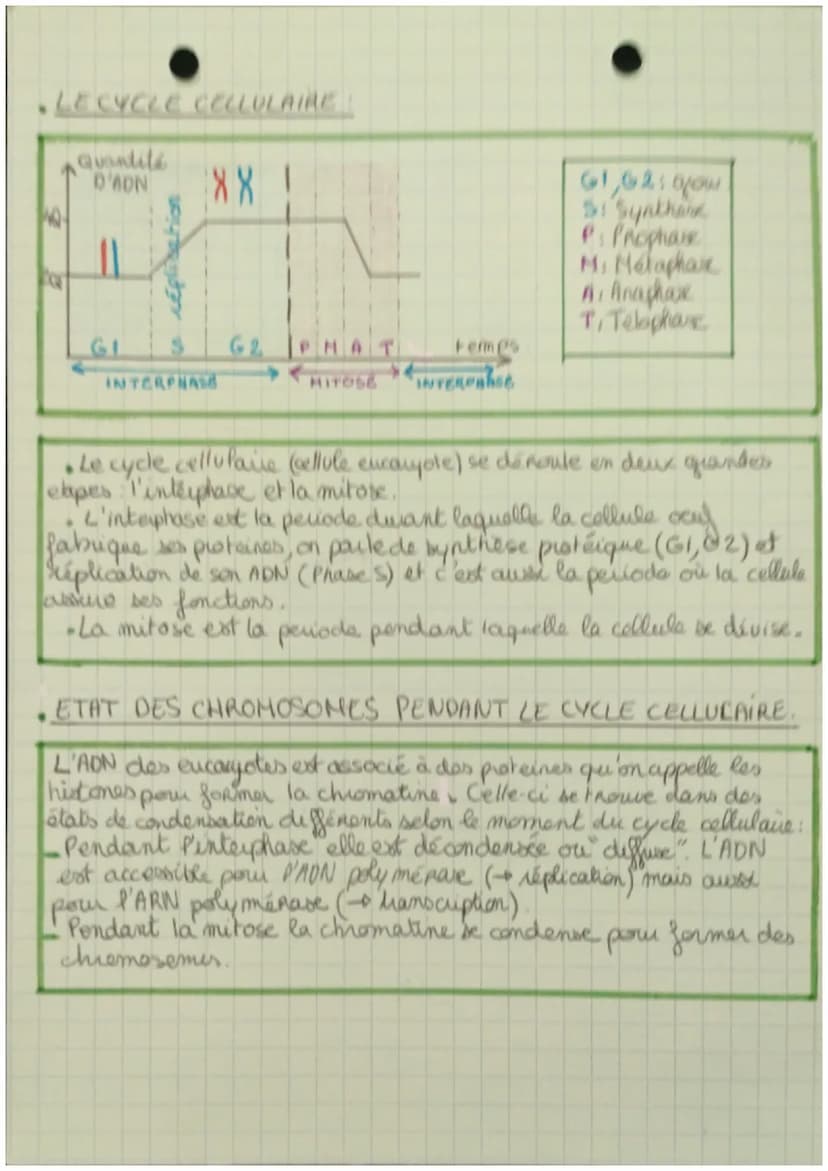 . LE CYCLE CELLULAIRE :
Quantité
D'ADN
réplication
G1 S G2 P M A T temps
INTERPHASE MITOSE INTERPHASE
G1, G2 : grow
S : Synthase
P : Prophase
M : Métaphase
A : Anaphase
T : Telophase
. Le cycle cellulaire (cellule eucaryote) se déroule en deux grandes
etapes : l'interphase et la mitose.
. L'interphase est la periode durant laquelle la cellule
fabrique ses proteines, on parle de synthèse protéique (G1, G2) et
réplication de son ADN (Phase S) et c'est aussi la periode où la cellule
assure ses fonctions.
. La mitose est la periode pendant laquelle la cellule se divise.
. ETAT DES CHROMOSOMES PENDANT LE CYCLE CELLULAIRE.
L'ADN des eucaryotes est associé à des proteines qu'on appelle les
histones pour former la chromatine. Celle-ci se trouve dans des
états de condensation différents selon le moment du cycle cellulaire :
- Pendant l'interphase elle est décondensée ou "diffuse". L'ADN
est accessible pour l'ADN polymérase (→ réplication) mais aussi
pour l'ARN polymérase (→ transcription)
- Pendant la mitose la chromatine se condense pour former des
chromosomes.